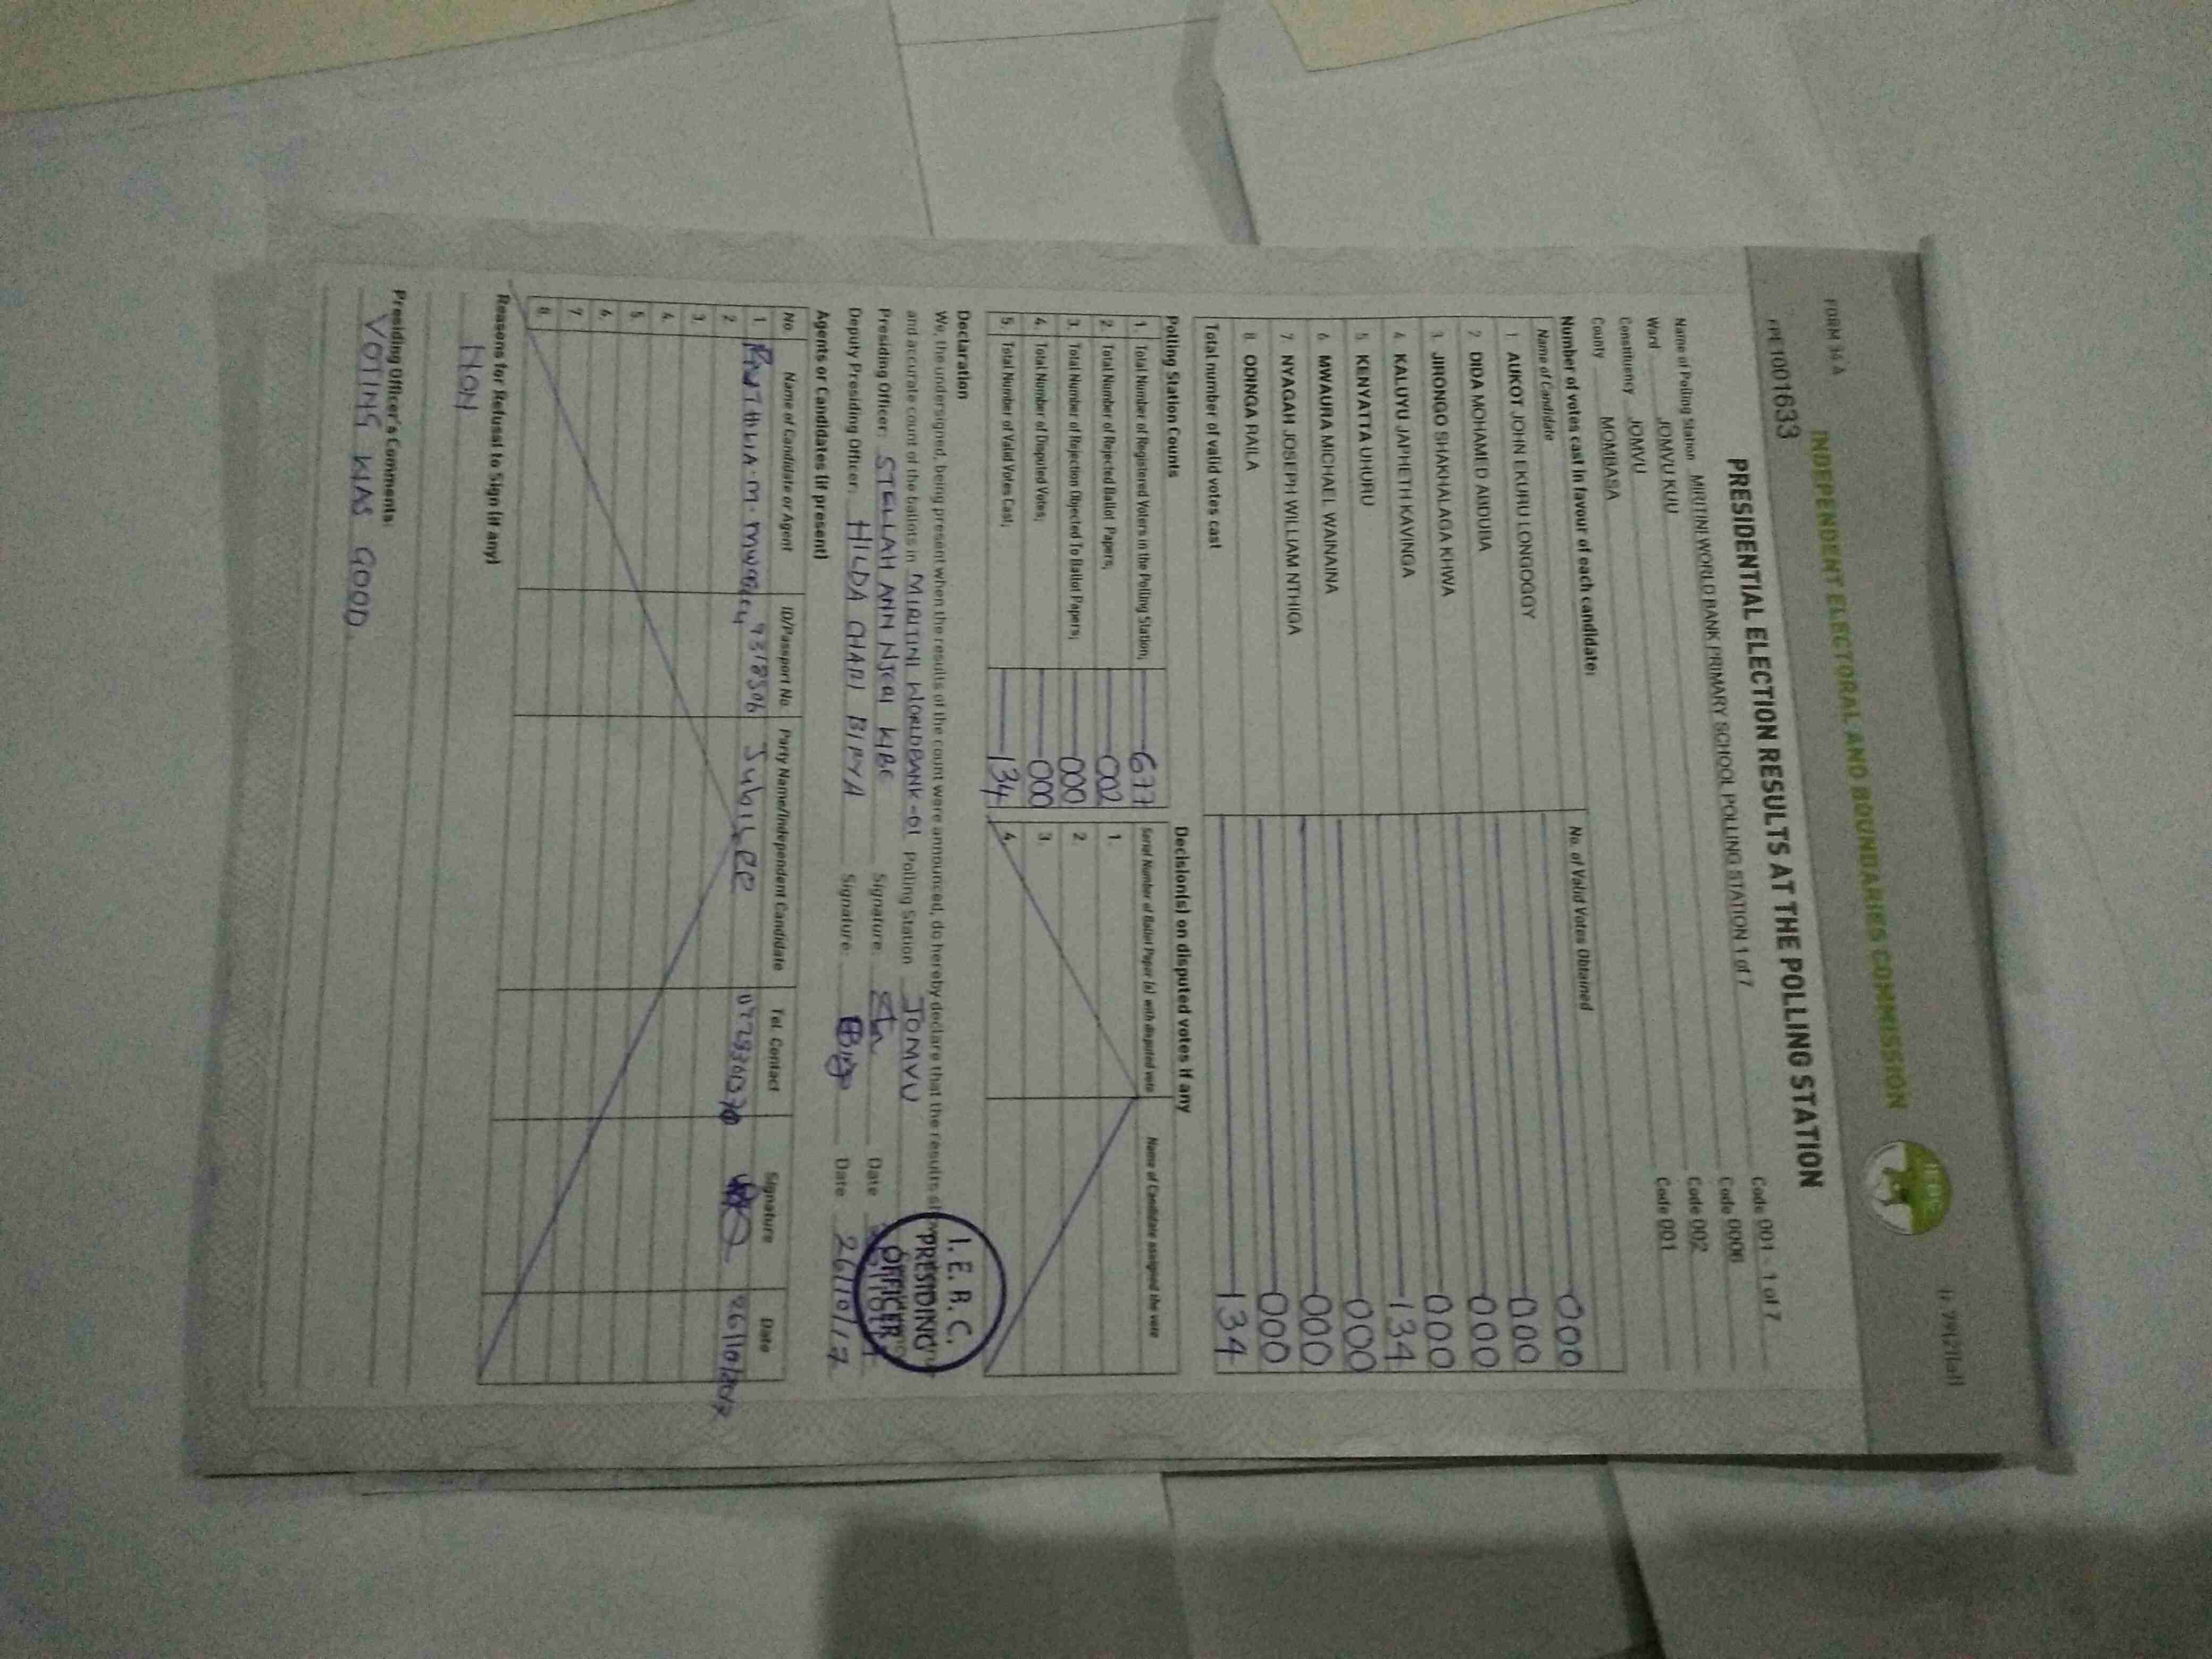 FORM 34 A
INDEPENDENT ELECTORAL AND BOUNDARIES COMMISSION
IEBC
FPE1001633
PRESIDENTIAL ELECTION RESULTS AT THE POLLING STATION
Name of Polling Station MIRITINI WORLD BANK PRIMARY SCHOOL POLLING STATION 1 of 7 Code 001 1 of 7
Ward JOMVU KUU Code 0006
Constituency JOMVU Code 002
County MOMBASA Code 001
Number of votes cast in favour of each candidate:
Name of Candidate No. of Valid Votes Obtained
1 AUKOT JOHN EKURU LONGOGGY 000
2 DIDA MOHAMED ABDUBA 000
3 JIRONGO SHAKHALAGA KHWA 000
4 KALUYU JAPHETH KAVINGA 000
5 KENYATTA UHURU 134
6 MWAURA MICHAEL WAINAINA 000
7 NYAGAH JOSEPH WILLIAM NTHIGA 000
8 ODINGA RAILA 000
Total number of valid votes cast 134
Polling Station Counts
1. Total Number of Registered Voters in the Polling Station; 677
2. Total Number of Rejected Ballot Papers; 002
3. Total Number of Rejection Objected To Ballot Papers; 000
4. Total Number of Disputed Votes; 000
5. Total Number of Valid Votes Cast; 134
Decision(s) on disputed votes if any
Serial Number of Ballot Paper (s) with disputed vote Name of Candidate assigned the vote
1.
2.
3.
4.
Declaration
We, the undersigned, being present when the results of the count were announced, do hereby declare that the results
and accurate count of the ballots in MIRITINI WORLDBANK-01 Polling Station JOMVU
Presiding Officer: STELLAH ANN NJERI KIBE Signature Date
Deputy Presiding Officer: HILDA CHARI BINYA Signature: Date 26/10/17
I.E.B.C.
PRESIDING
OFFICER
Agents or Candidates (if present)
No. Name of Candidate or Agent ID/Passport No. Party Name/Independent Candidate Tel. Contact Signature Date
1. Jubilee 26/10/2017
2.
3.
4.
5.
6.
7.
8.
Reasons for Refusal to Sign (if any)
NON
Presiding Officer's Comments:
VOTING WAS GOOD.